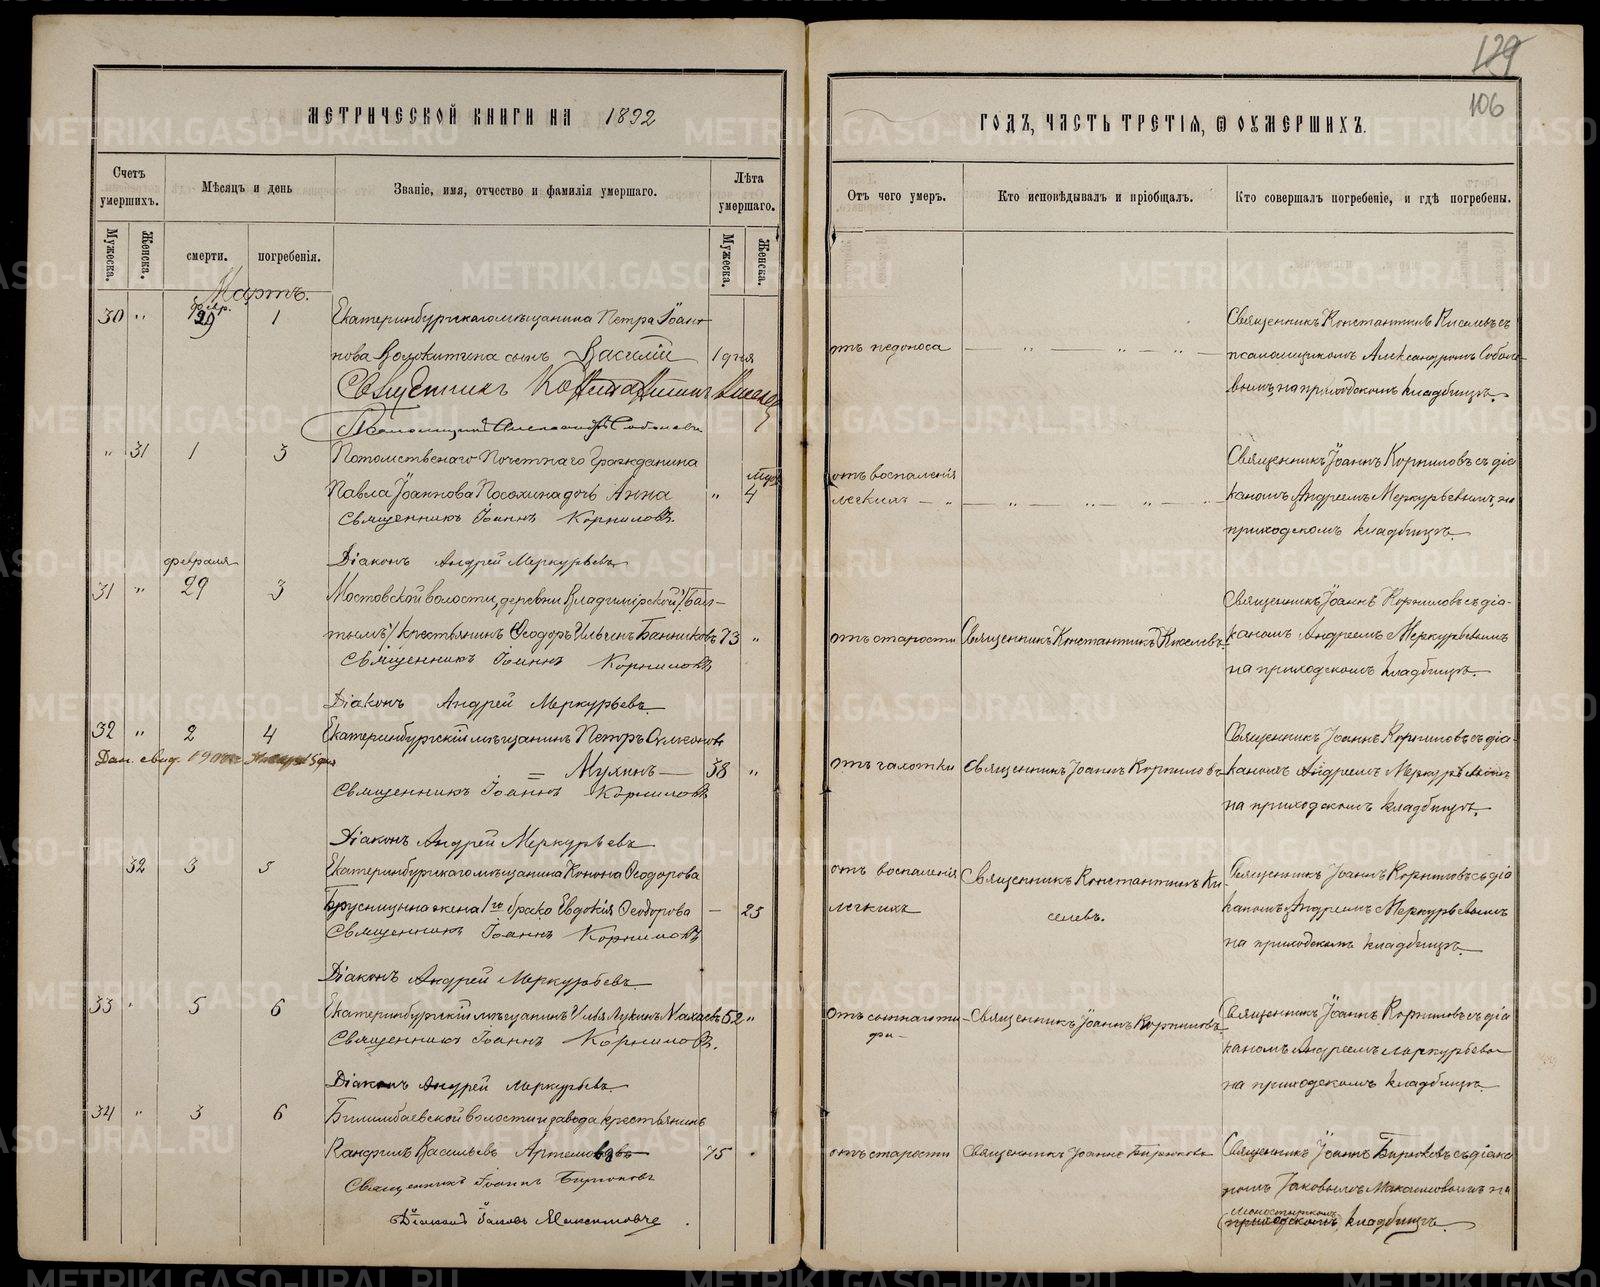 129
106
МЕТРИЧЕСКОЙ КНИГИ НА 1892
ГОДЪ, ЧАСТЬ ТРЕТІЯ, Ѿ ОУМЕРШИХЪ.
Счетъ умершихъ.
Мѣсяцъ и день
Званіе, имя, отчество и фамилія умершаго.
Лѣта умершаго.
Отъ чего умеръ.
Кто исповѣдывалъ и пріобщалъ.
Кто совершалъ погребеніе, и гдѣ погребены.
Мужеска. Женска. смерти. погребенія. Мужеска. Женска.
Мартъ.
30 " 29 1 Екатеринбургскаго мѣщанина Петра Іоан-
нова Волокитина сынъ Василій 1 дня
Священникъ Константинъ Киселевъ
Псаломщикъ Александръ Соболевъ
отъ недоноса
Священникъ Константинъ Киселевъ съ
псаломщикомъ Александромъ Соболе-
вымъ, на приходскомъ кладбищѣ.
" 31 1 3 Потомственаго Почетнаго Гражданина
Павла Іоаннова Посохина дочь Анна " 4
Священникъ Іоаннъ Корниловъ.
Діаконъ Андрей Меркурьевъ
отъ воспаленія
легкихъ
Священникъ Іоаннъ Корниловъ съ діа
кономъ Андреемъ Меркурьевымъ, на
приходскомъ кладбищѣ.
февраля
31 " 29 3 Мостовской волости, деревни Владимірской /Бал-
тымъ/ крестьянинъ Ѳеодоръ Ильинъ Банниковъ 73 "
Священникъ Іоаннъ Корниловъ
Діаконъ Андрей Меркурьевъ
отъ старости
Священникъ Константинъ Киселевъ
Священникъ Іоаннъ Корниловъ съ діа-
кономъ Андреемъ Меркурьевымъ
на приходскомъ кладбищѣ.
32 " 2 4 Екатеринбургскій мѣщанинъ Петръ Симеоновъ
Дан. свид.
Мухинъ 38 "
Священникъ Іоаннъ Корниловъ
Діаконъ Андрей Меркурьевъ
отъ чахотки
Священникъ Іоаннъ Корниловъ
Священникъ Іоаннъ Корниловъ съ діа-
кономъ Андреемъ Меркурьевымъ
на приходскомъ кладбищѣ.
32 3 5 Екатеринбургскаго мѣщанина Конона Ѳеодорова
Брусницына жена 1го брака Евдокія Ѳеодорова — 25
Священникъ Іоаннъ Корниловъ
Діаконъ Андрей Меркурьевъ
отъ воспаленія
легкихъ
Священникъ Константинъ Ки
селевъ.
Священникъ Іоаннъ Корниловъ съ діа
кономъ Андреемъ Меркурьевымъ
на приходскомъ кладбищѣ.
33 " 5 6 Екатеринбургскій мѣщанинъ Илья Лукинъ 52 "
Священникъ Іоаннъ Корниловъ.
Діаконъ Андрей Меркурьевъ
Священникъ Іоаннъ Корниловъ
Священникъ Іоаннъ Корниловъ съ діа
кономъ Андреемъ Меркурьевы
на приходскомъ кладбищѣ.
34 " 3 6 Билимбаевской волости и завода крестьянинъ
Канфилъ Васильевъ Артемовъ 75
Священникъ Іоаннъ Бирюковъ
Діаконъ Іаковъ Максимовъ
отъ старости
Священникъ Іоаннъ Бирюковъ
Священникъ Іоаннъ Бирюковъ съ діако
номъ Іаковомъ Максимовымъ на
монастырскомъ
(приходскомъ) кладбищѣ.
METRIKI.GASO-URAL.RU